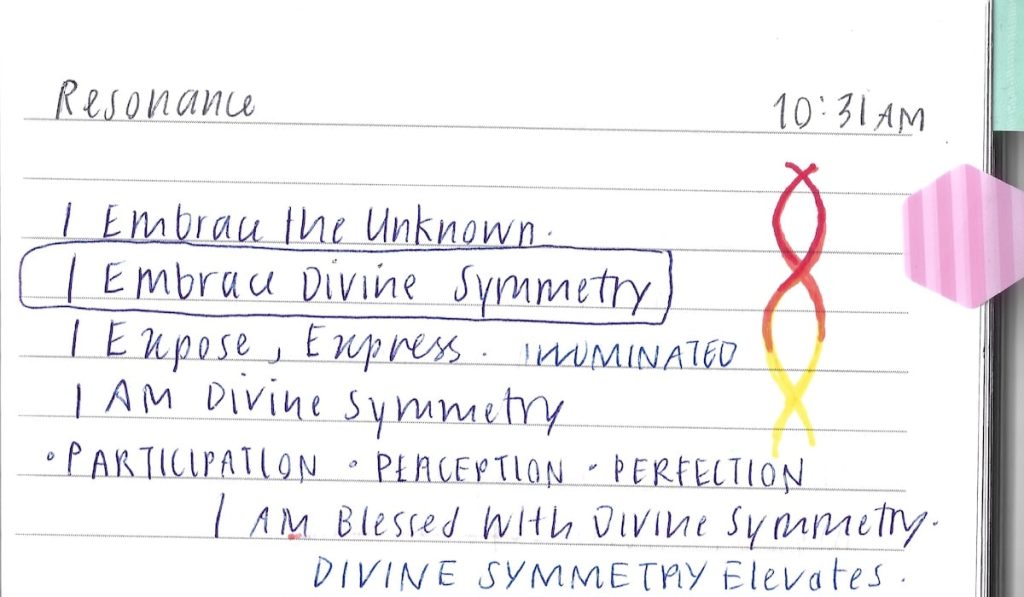 Resonance 10:31 AM
I Embrace the Unknown.
I Embrace Divine Symmetry
I Expose, Express. ILLUMINATED
I AM Divine Symmetry
• PARTICIPATION • PERCEPTION • PERFECTION
I AM Blessed With Divine Symmetry.
DIVINE SYMMETRY Elevates.